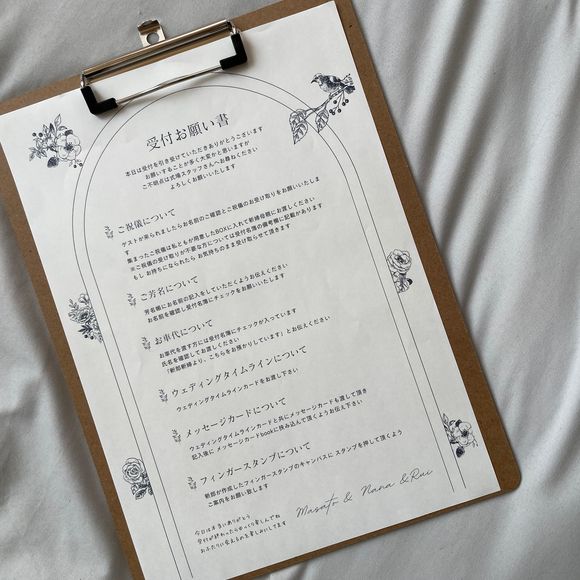 受付お願い書
本日は受付を引き受けていただきありがとうございます
お願いすることが多く大変かと思いますが
ご不明点は式場スタッフさんへお尋ねください
よろしくお願いいたします
ご祝儀について
ゲストが来られましたらお名前のご確認とご祝儀のお受け取りをお願いいたしま
す
集まったご祝儀は私どもが用意したBOXに入れて新婦母親にお渡しください
※ご祝儀の受け取りが不要な方については受付名簿の備考欄に記載があります
もし お持ちになられたら お気持ちのまま受け取らせて頂きます
ご芳名について
芳名帳にお名前の記入をしていただくようお伝えください
お名前を確認し受付名簿にチェックをお願いいたします
お車代について
お車代を渡す方には受付名簿にチェックが入っています
氏名を確認してお渡しください
「新郎新婦より、こちらをお預かりしています」とお伝えください
ウェディングタイムラインについて
ウェディングタイムラインカードをお渡し下さい
メッセージカードについて
ウェディングタイムラインカードと共にメッセージカードも渡して頂き
記入後に メッセージカードbookに挟み込んで頂くようお伝え下さい
フィンガースタンプについて
新郎が作成したフィンガースタンプのキャンバスに スタンプを押して頂くよう
ご案内をお願い致します
Masato & Nana & Rui
今日は本当にありがとう
受付が終わったらゆっくり楽しんでね
おふたりに会えるのを楽しみにしてます